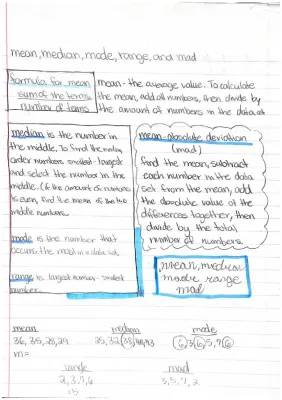 mean, median, mode, range, and mad
formula for mean
sum of the terms
number of terms
mean - the average value. To calculate
the mean, add all numbers, then divide by
the amount of numbers in the data set
median is the number in
the middle. To find the median,
order numbers smallest - largest
and select the number in the
middle. (If the amount of numbers
is even, find the mean of the two
middle numbers.
mode is the number that
occurs the most in a data set.
range is largest number - smallest
number.
mean absolute deviation
(mad)
Find the mean, subtract
each number in the data
set from the mean, add
the absolute value of the
differences together, then
divide by the total
number of numbers.
mean, median
mode range
mad
mean
36, 35, 28, 29
m=
median
25, 32, 38, 48, 93
mode
6, 3, 6, 5, 7, 6
range
2, 3, 7, 6
=5
mad
3, 5, 7, 2